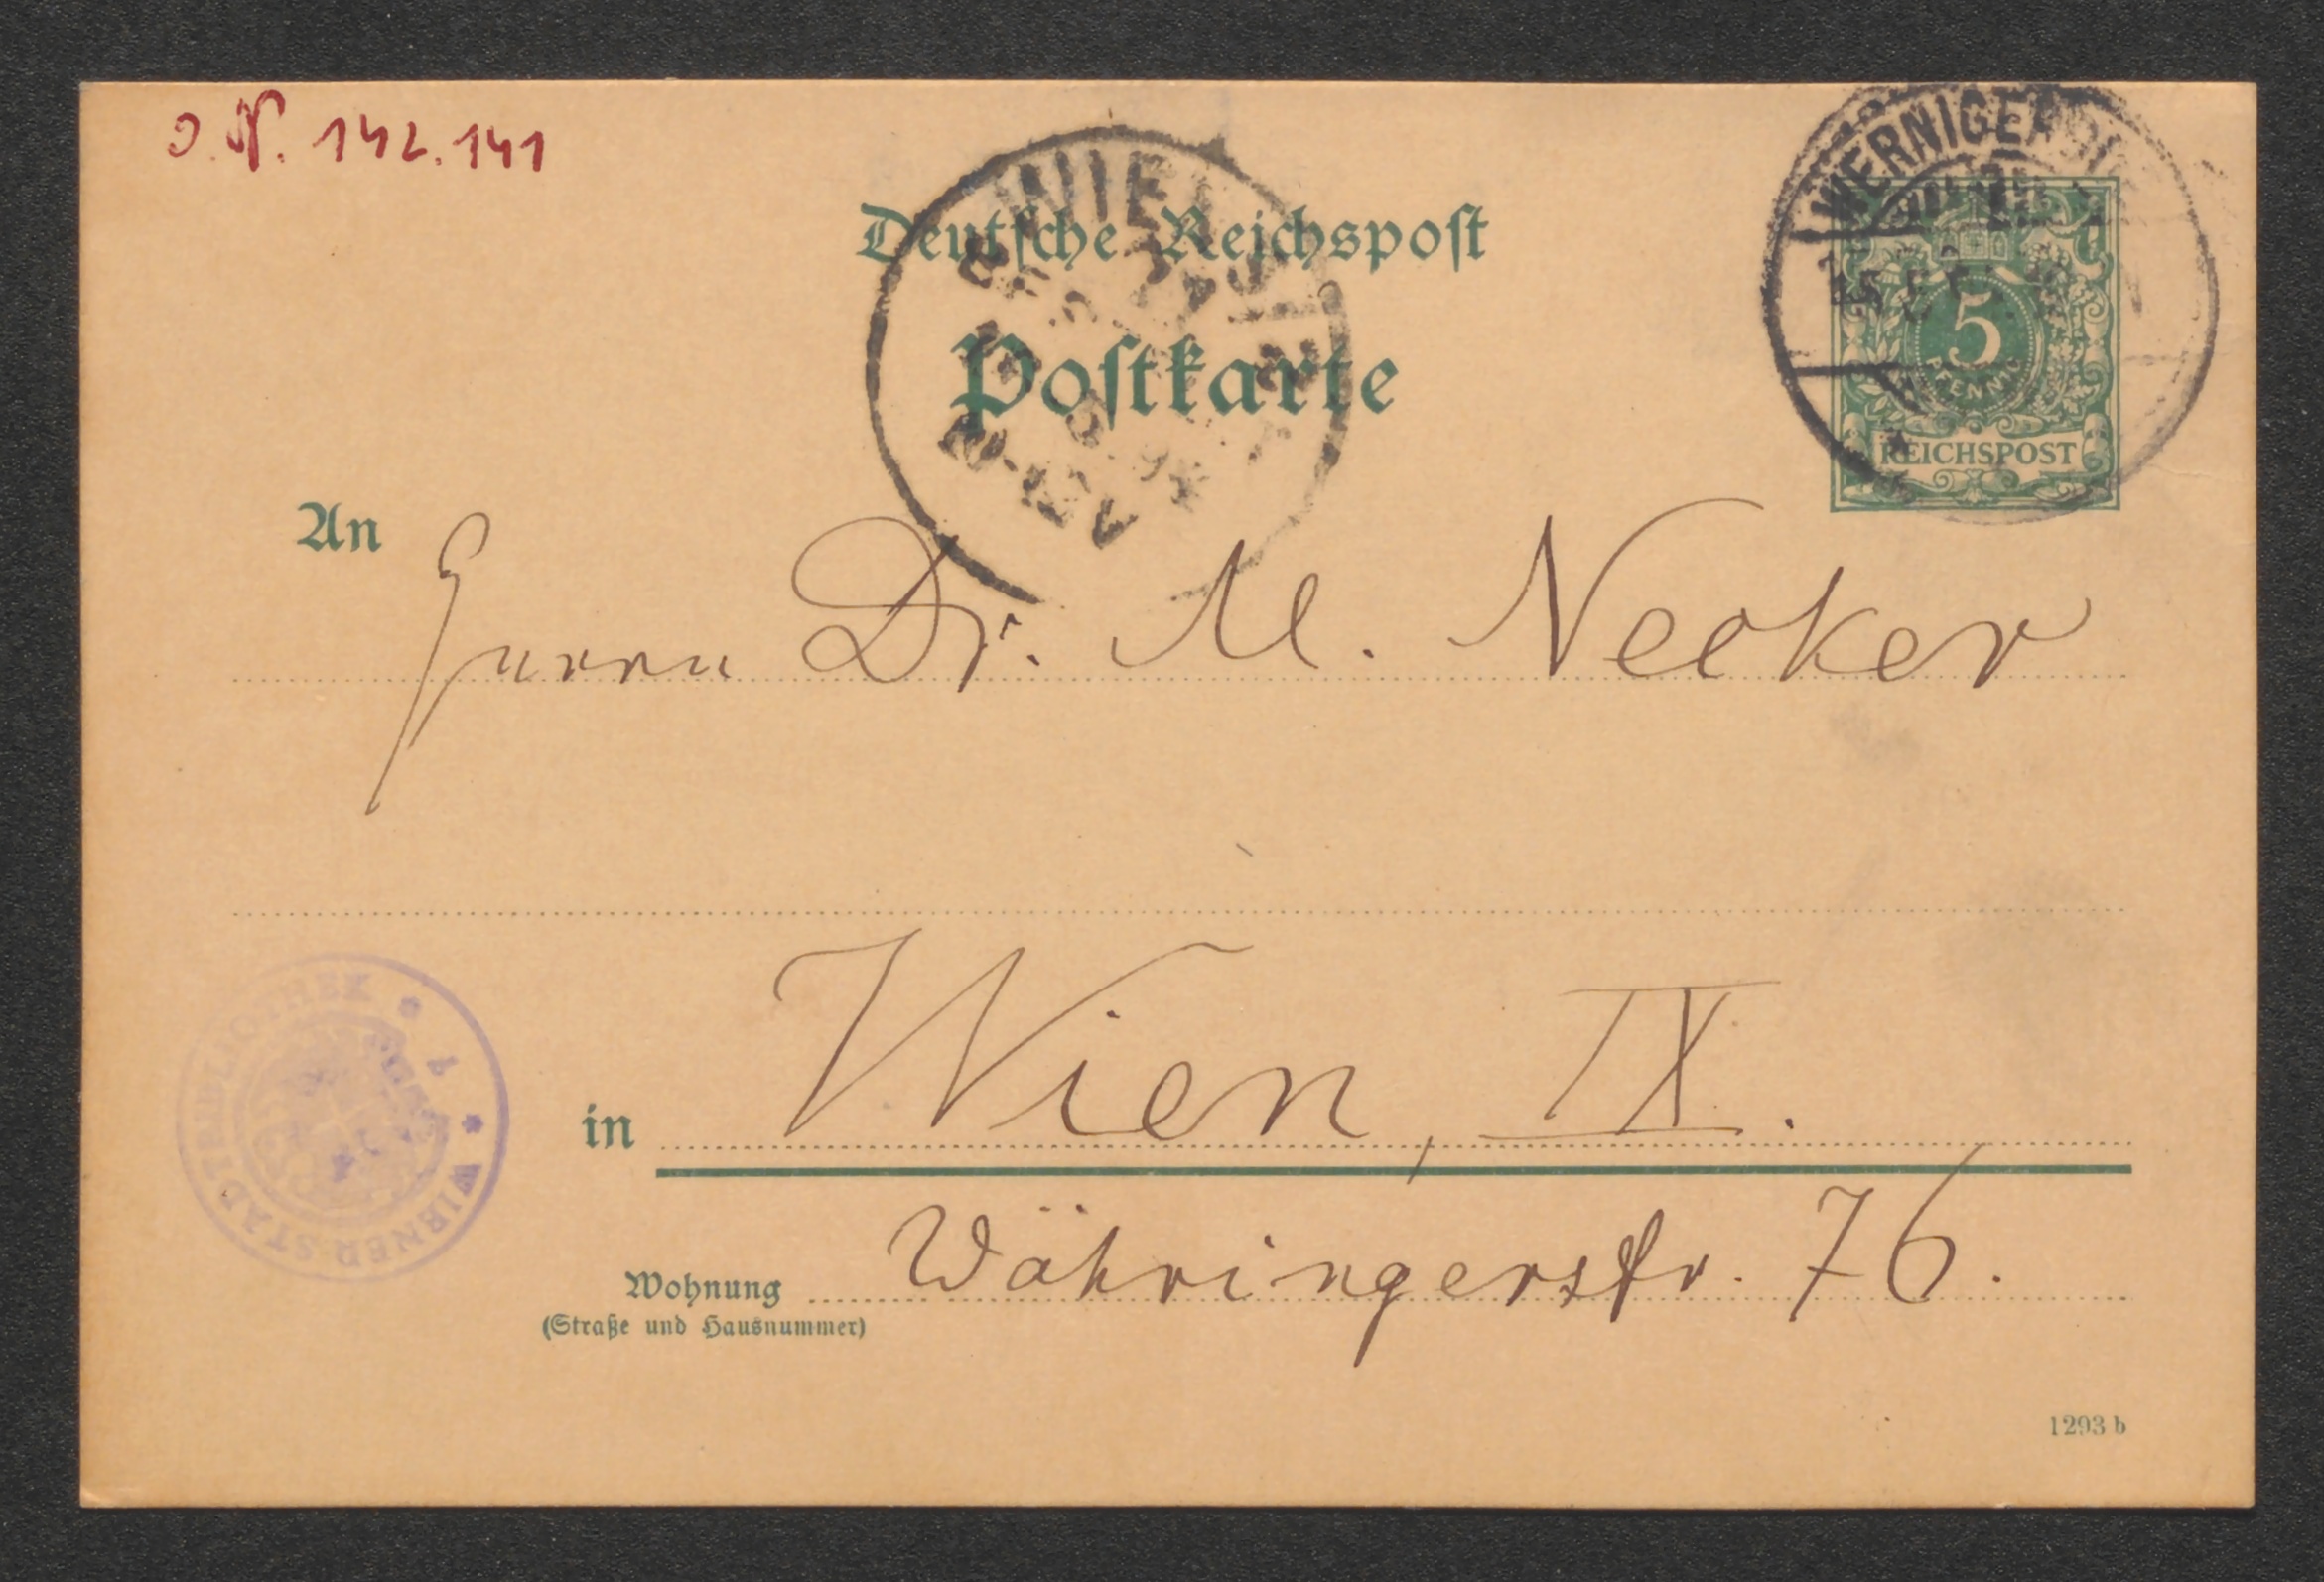 J.N. 142.141
WIEN
Deutsche Reichspost
WERNIGERO
Postkarte
5
PFENNIG
REICHSPOST
An
Herrn Dr. M. Necker
in Wien, IX.
WIENER STADTBIBLIOTHEK
Wohnung Währingerstr. 76.
(Straße und Hausnummer)
1293 b